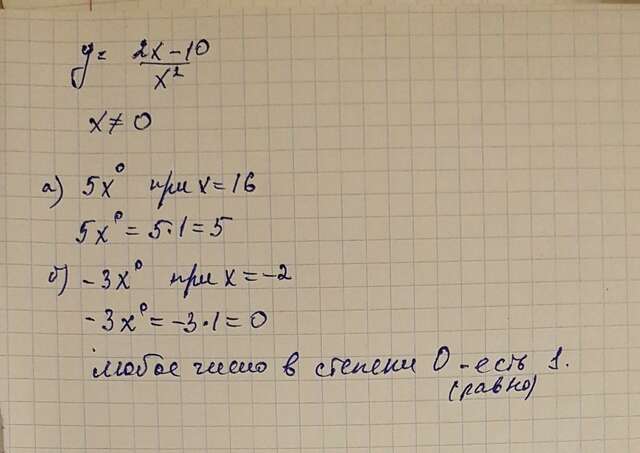 y = 2x-10
x²
x ≠ 0
а) 5x⁰ при x = 16
5x⁰ = 5·1 = 5
б) -3x⁰ при x = -2
-3x⁰ = -3·1 = 0
любое число в степени 0 - есть 1.
(равно)